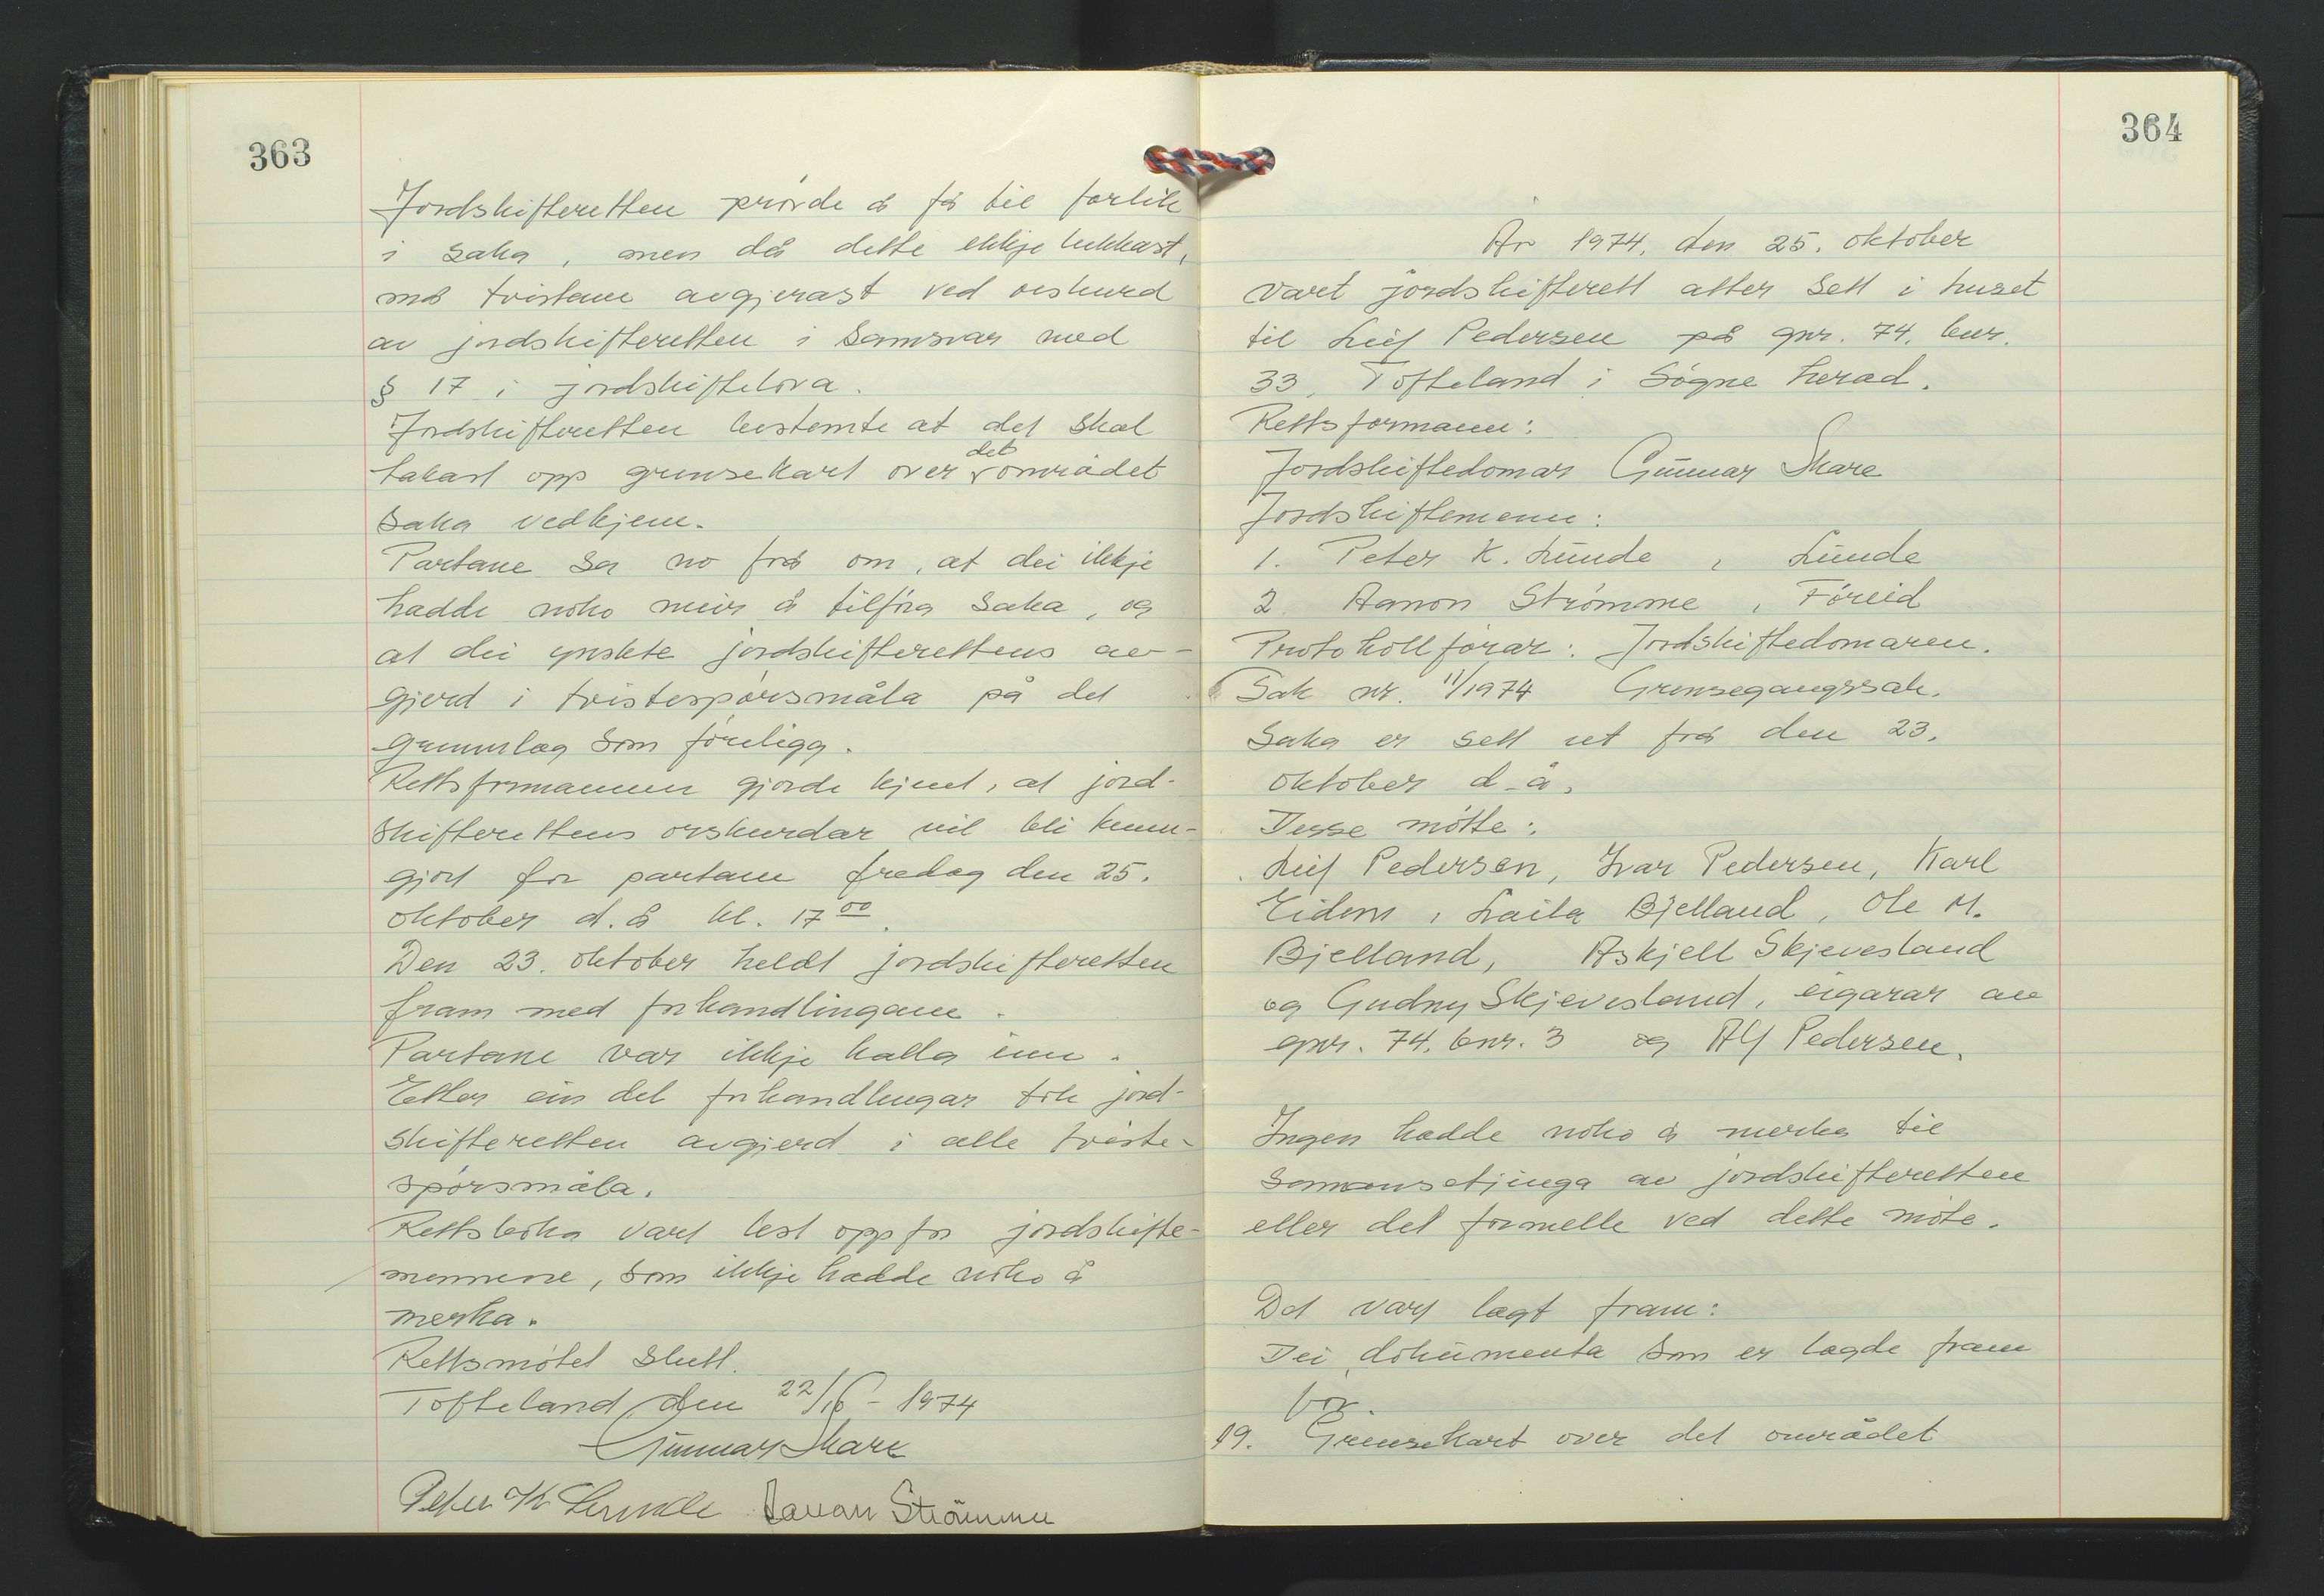 363
Jordskifteretten prövde å få til forlik
i saka, men då dette ikkje lukkast,
må tvistane avgjerast ved orskurd
av jordskifteretten i samsvar med
§ 17 i jordskiftelova.
Jordskifteretten bestemte at det skal
det
takast opp grensekart over området
saka vedkjem.
Partane sa no frå om, at dei ikkje
hadde noko meir å tilföra saka, og
at dei ynskte jordskifterettens av-
gjerd i tvistespörsmåla på det
grunnlag som föreligg.
Rettsformannen gjorde kjent, at jord-
skifterettens orskurdar vil bli kunn-
gjort for partane fredag den 25.
oktober d.å kl. 17 00.
Den 23. oktober heldt jordskifteretten
fram med forhandlingane.
Partane var ikkje kalla inn.
Etter ein del forhandlingar tok jord-
skifteretten avgjerd i alle tviste-
spörsmåla.
Rettsboka vart lest opp for jordskifte-
mennene, som ikkje hadde noko å
merka.
Rettsmötet slutt.
Tofteland, den 22/10 - 1974
Gunnar Skare
Peter K Lunde Hanan Strömme
364
År 1974, den 25. oktober
vart jordskifterett atter sett i huset
til Leif Pedersen på gnr. 74, bnr.
33, Tofteland i Sögne herad.
Rettsformann:
Jordskiftedomar Gunnar Skare
Jordskiftemenn:
1. Peter K. Lunde, Lunde
2. Hanon Strömme, Föreid
Protokollförar: Jordskiftedomaren.
Sak nr. 11/1974 Grensegangssak.
Saka er sett ut frå den 23.
oktober d.å.
Desse mötte:
Leif Pedersen, Ivar Pedersen, Karl
Eidem, Laila Bjelland, Ole M.
Bjelland, Askjell Skjevesland
og Gudny Skjevesland, eigarar av
gnr. 74, bnr. 3 og Alf Pedersen.
Ingen hadde noko å merka til
samansetjinga av jordskifteretten
eller det formelle ved dette möte.
Det vart lagt fram:
Dei dokumenta som er lagde fram
för.
19. Grensekart over det området